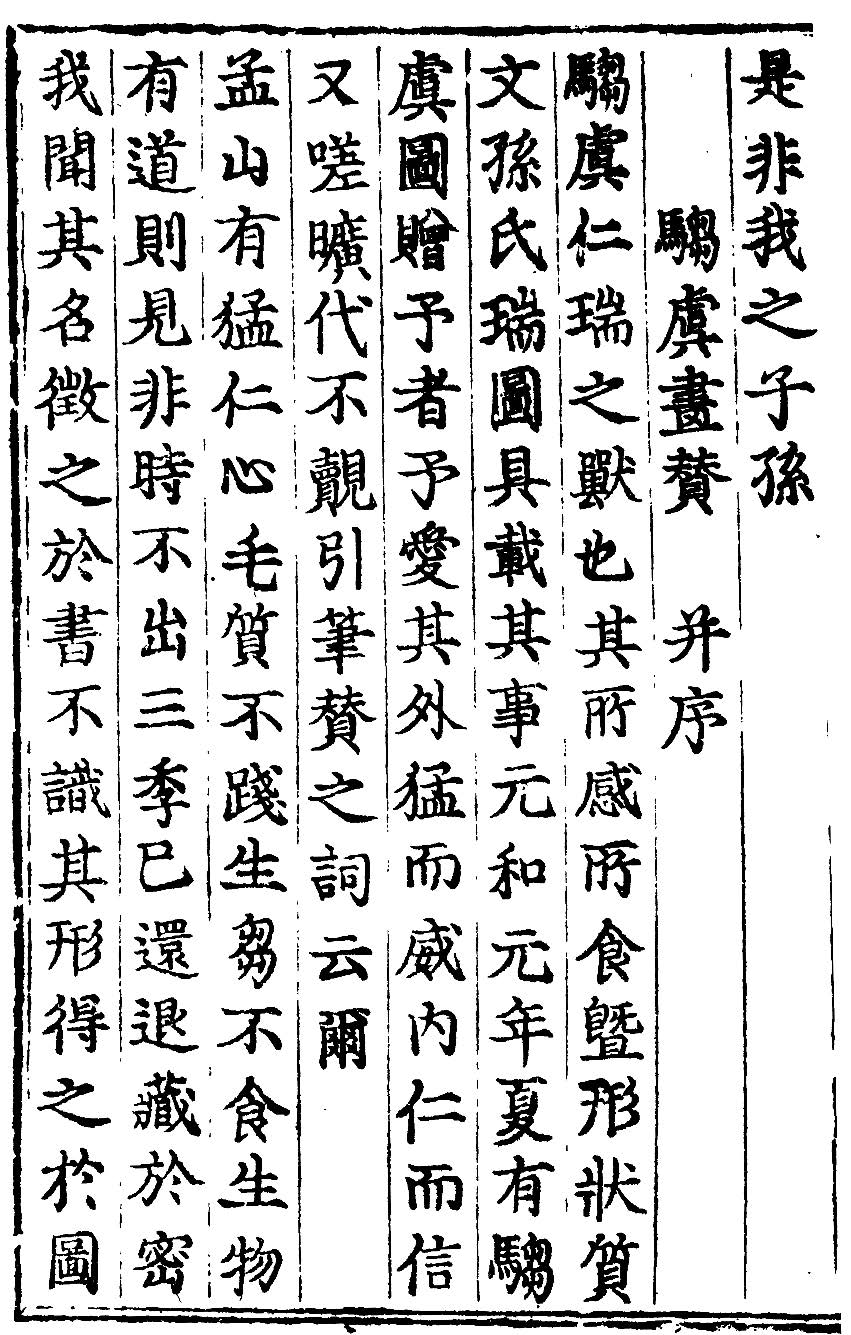 是非我之子孫
騶虞畫賛　并序
騶虞仁瑞之獸也其所感所食曁形狀質
文孫氏瑞圖具載其事元和元年夏有騶
虞圖贈予者予愛其外猛而威内仁而信
又嗟曠代不覿引筆賛之詞云爾
孟山有猛仁心毛質不踐生芻不食生物
有道則見非時不出三季已還退藏於密
我聞其名徵之於書不識其形得之於圖